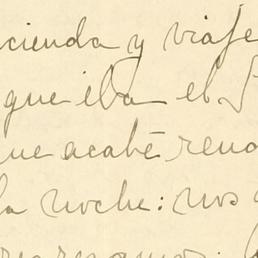 cienda y viaje
que iba el
ue acabé
la noche: nos